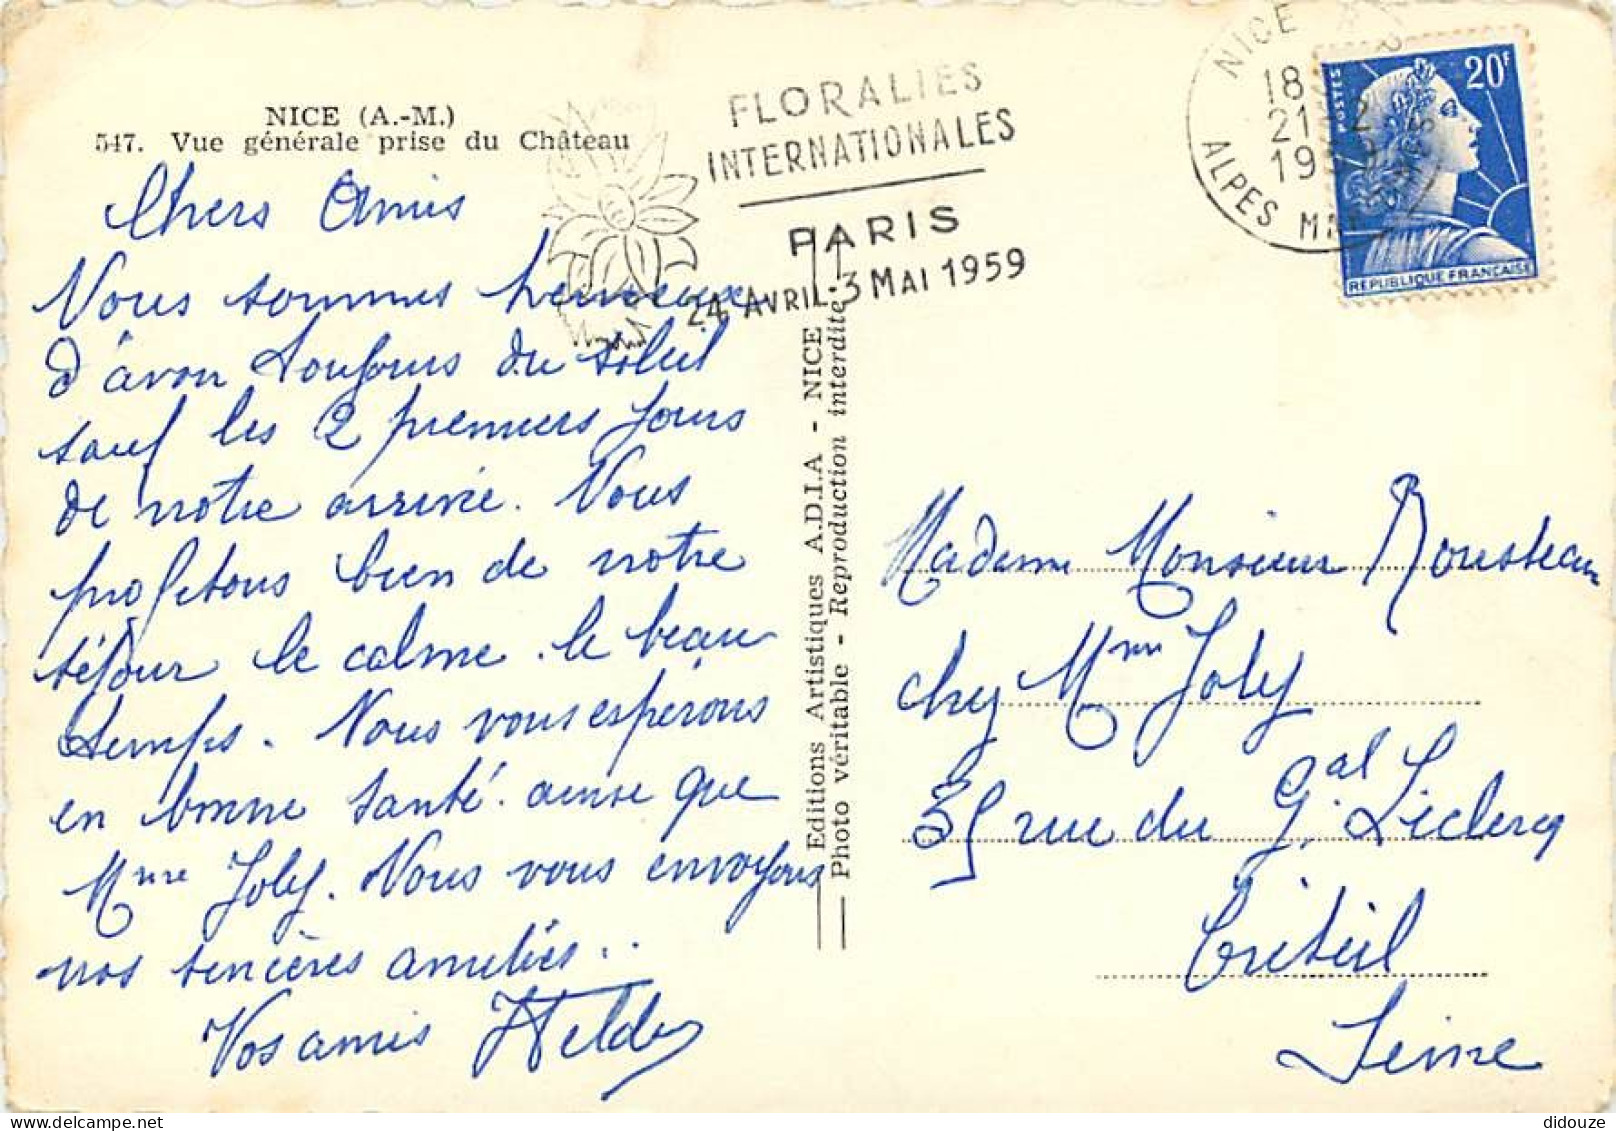 NICE (A.-M.)
547. Vue générale prise du Château
FLORALIES
INTERNATIONALES
PARIS
24 AVRIL-3 MAI 1959
NICE
18
21-2
1959
ALPES MMES
POSTES
20F
REPUBLIQUE FRANCAISE
Chers Amis
Nous sommes heureux
d'avon toujours du soleil
sauf les 2 premiers jours
de notre arrivée. Nous
profitons bien de notre
séjour le calme. le beau
temps. Nous vous espérons
en bonne santé. ainsi que
Mme Joly. Nous vous envoyons
nos sincères amitiés..
Vos amis
Editions Artistiques A.D.I.A - NICE
Photo véritable - Reproduction interdite
Madame Monsieur Rousteau
chez Mme Joly
35 rue du Gal. Leclercq
Créteil
Seine
didouze